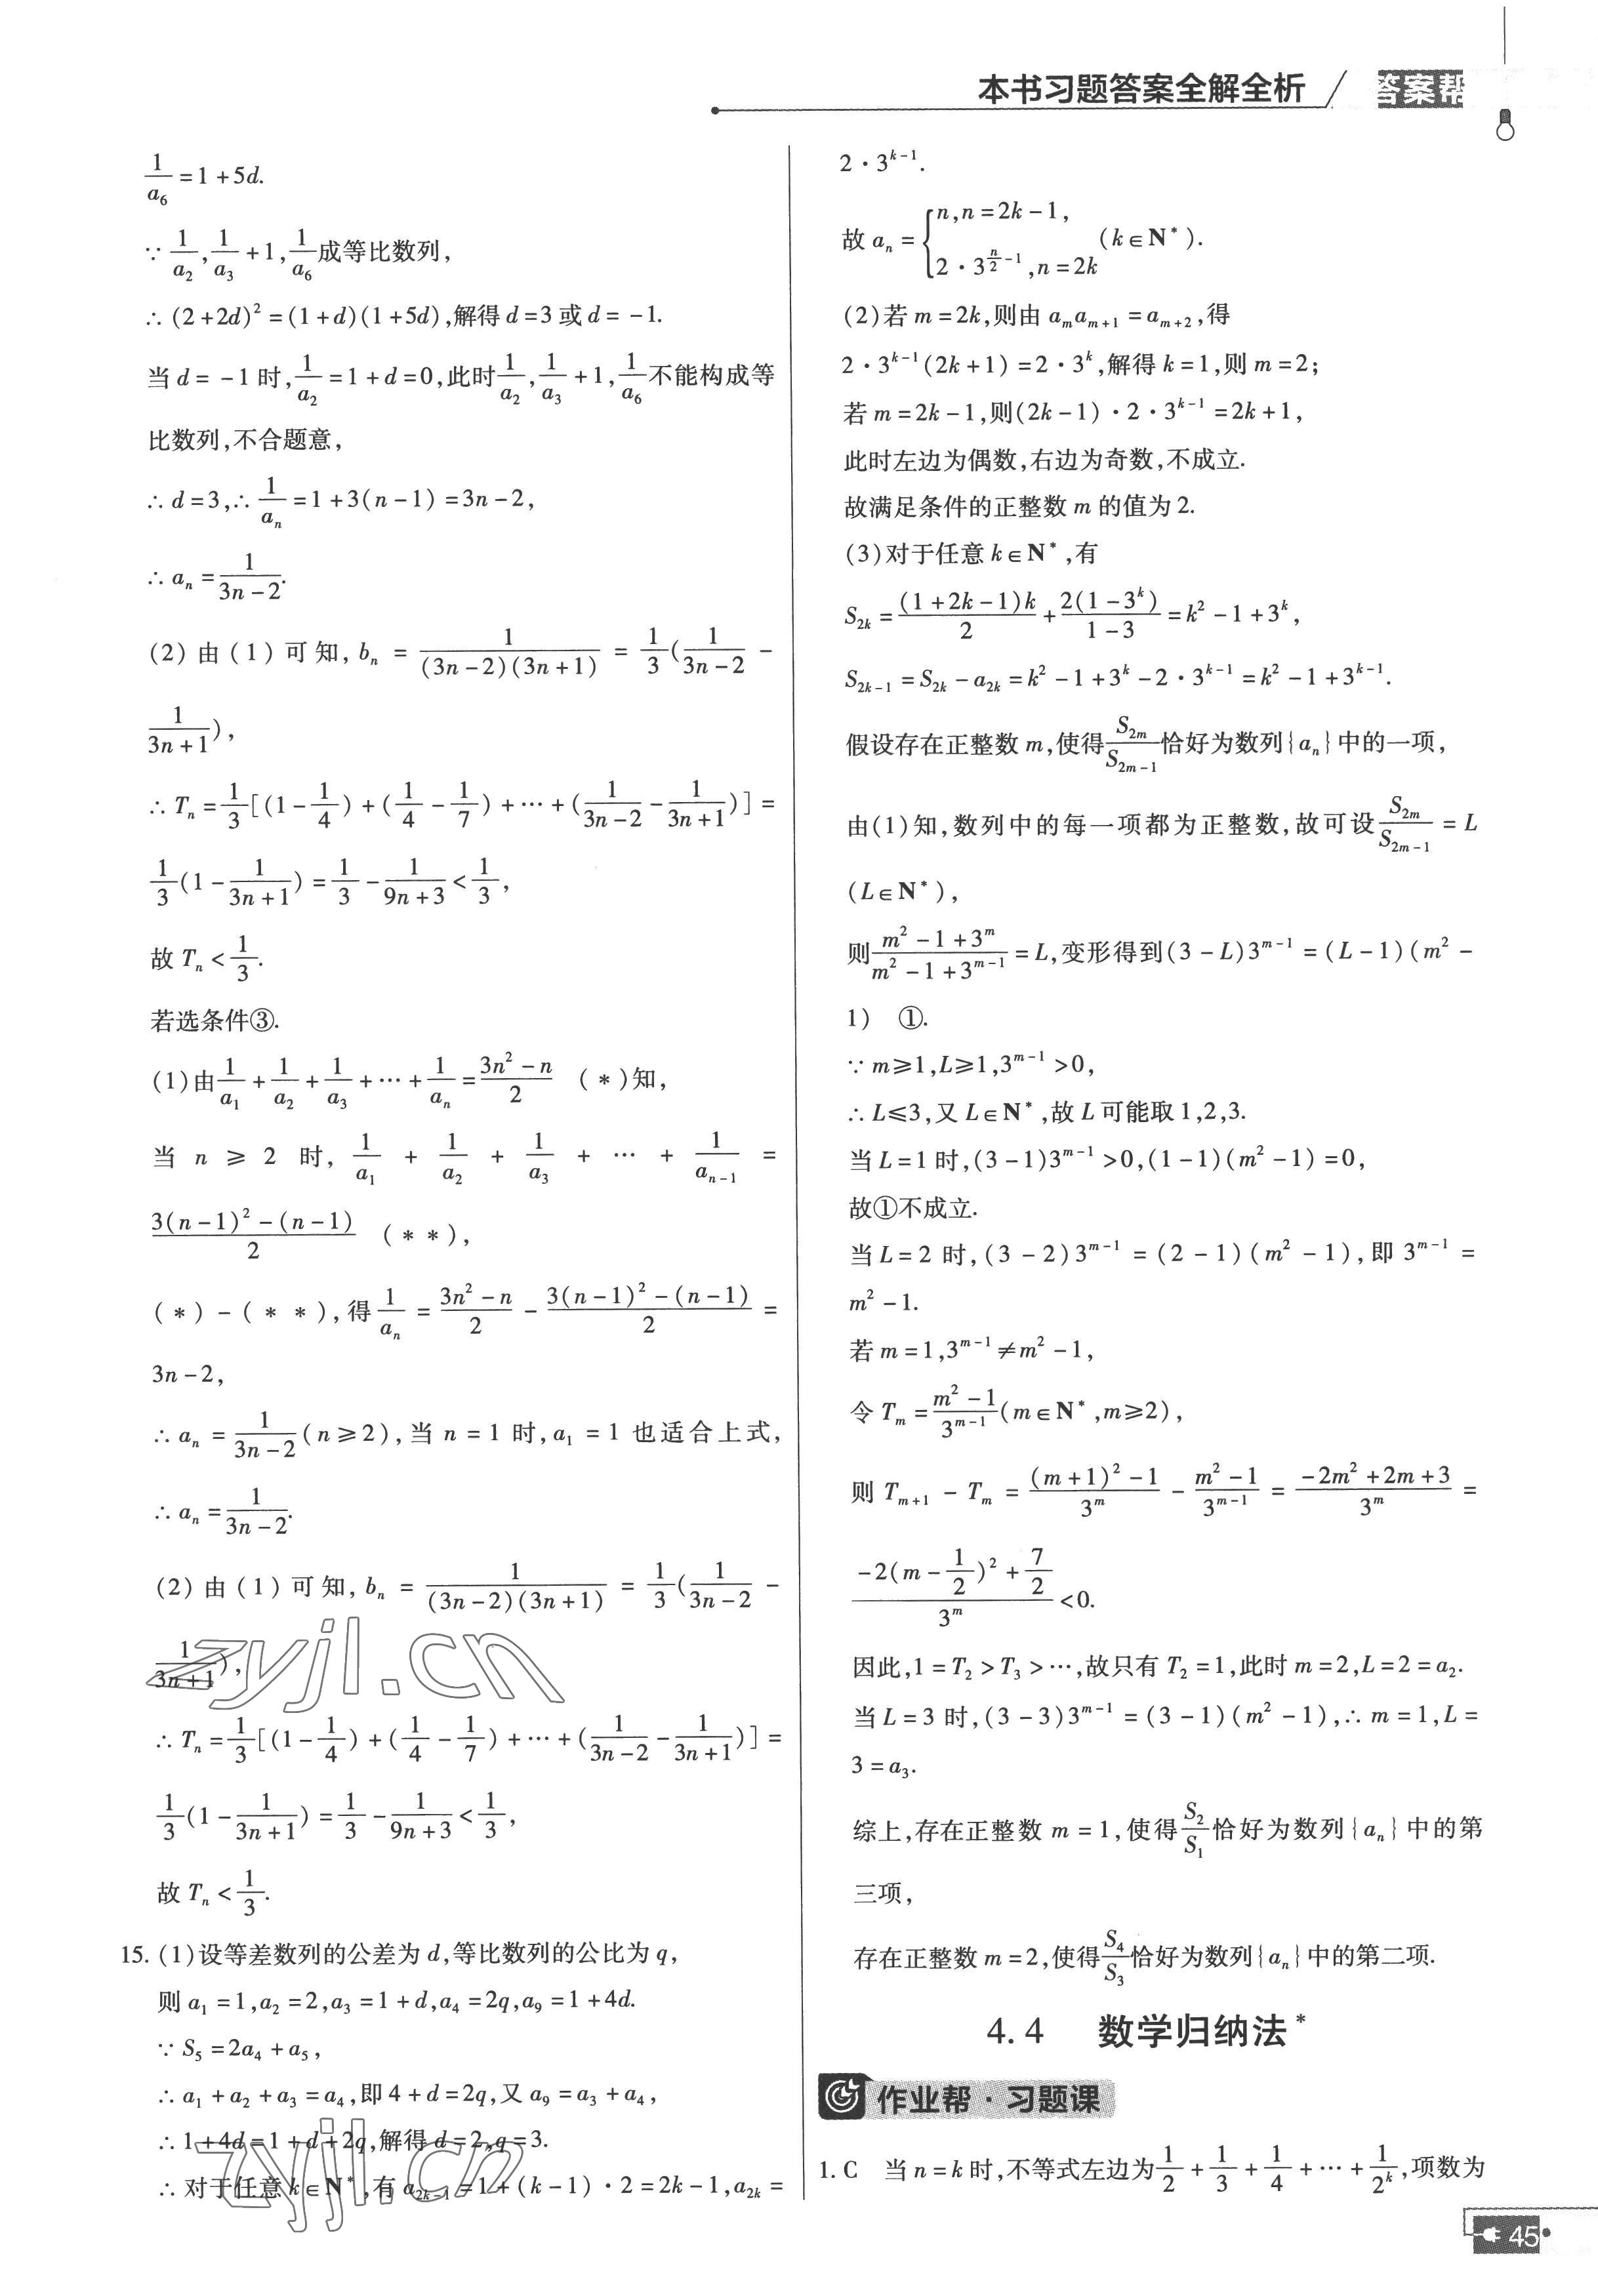 本书习题答案全解全析 答案帮
1/a₆ = 1 + 5d.
∵ 1/a₂, 1/a₃ + 1, 1/a₆ 成等比数列,
∴ (2+2d)² = (1+d)(1+5d),解得 d = 3 或 d = -1.
当 d = -1 时, 1/a₂ = 1 + d = 0,此时 1/a₂, 1/a₃ + 1, 1/a₆ 不能构成等
比数列,不合题意,
∴ d = 3,∴ 1/aₙ = 1 + 3(n-1) = 3n-2,
∴ aₙ = 1/(3n-2).
(2) 由 (1) 可知, bₙ = 1/((3n-2)(3n+1)) = 1/3(1/(3n-2) -
1/(3n+1)),
∴ Tₙ = 1/3[(1-1/4)+(1/4-1/7)+⋯+(1/(3n-2)-1/(3n+1))] =
1/3(1-1/(3n+1)) = 1/3 - 1/(9n+3) < 1/3,
故 Tₙ < 1/3.
若选条件③.
(1)由 1/a₁ + 1/a₂ + 1/a₃ + ⋯ + 1/aₙ = (3n²-n)/2 (*)知,
当 n ≥ 2 时, 1/a₁ + 1/a₂ + 1/a₃ + ⋯ + 1/aₙ₋₁ =
(3(n-1)²-(n-1))/2 (**),
(*)-(**),得 1/aₙ = (3n²-n)/2 - (3(n-1)²-(n-1))/2 =
3n-2,
∴ aₙ = 1/(3n-2)(n≥2),当 n = 1 时,a₁ = 1 也适合上式,
∴ aₙ = 1/(3n-2).
(2) 由 (1) 可知, bₙ = 1/((3n-2)(3n+1)) = 1/3(1/(3n-2) -
1/(3n+1)),
zyjl.cn
∴ Tₙ = 1/3[(1-1/4)+(1/4-1/7)+⋯+(1/(3n-2)-1/(3n+1))] =
1/3(1-1/(3n+1)) = 1/3 - 1/(9n+3) < 1/3,
故 Tₙ < 1/3.
15. (1)设等差数列的公差为 d,等比数列的公比为 q,
则 a₁ = 1,a₂ = 2,a₃ = 1+d,a₄ = 2q,a₉ = 1+4d.
∵ S₅ = 2a₄ + a₅,
∴ a₁ + a₂ + a₃ = a₄,即 4+d = 2q,又 a₉ = a₃ + a₄,
∴ 1+4d = 1+d+2q,解得 d = 2,q = 3.
∴ 对于任意 k∈N*,有 a₂ₖ₋₁ = 1+(k-1)·2 = 2k-1,a₂ₖ =
zyjl.cn
2·3^(k-1).
故 aₙ = { n,n = 2k-1,
2·3^(n/2-1),n = 2k (k∈N*).
(2)若 m = 2k,则由 aₘaₘ₊₁ = aₘ₊₂,得
2·3^(k-1)(2k+1) = 2·3^k,解得 k = 1,则 m = 2;
若 m = 2k-1,则(2k-1)·2·3^(k-1) = 2k+1,
此时左边为偶数,右边为奇数,不成立.
故满足条件的正整数 m 的值为 2.
(3)对于任意 k∈N*,有
S₂ₖ = (1+2k-1)k/2 + 2(1-3^k)/(1-3) = k²-1+3^k,
S₂ₖ₋₁ = S₂ₖ - a₂ₖ = k²-1+3^k-2·3^(k-1) = k²-1+3^(k-1).
假设存在正整数 m,使得 S₂ₘ/S₂ₘ₋₁ 恰好为数列{aₙ}中的一项,
由(1)知,数列中的每一项都为正整数,故可设 S₂ₘ/S₂ₘ₋₁ = L
(L∈N*),
则 (m²-1+3^m)/(m²-1+3^(m-1)) = L,变形得到(3-L)3^(m-1) = (L-1)(m²-
1) ①.
∵ m≥1,L≥1,3^(m-1)>0,
∴ L≤3,又 L∈N*,故 L 可能取 1,2,3.
当 L = 1 时,(3-1)3^(m-1)>0,(1-1)(m²-1) = 0,
故①不成立.
当 L = 2 时,(3-2)3^(m-1) = (2-1)(m²-1),即 3^(m-1) =
m²-1.
若 m = 1,3^(m-1) ≠ m²-1,
令 Tₘ = (m²-1)/3^(m-1) (m∈N*,m≥2),
则 Tₘ₊₁ - Tₘ = ((m+1)²-1)/3^m - (m²-1)/3^(m-1) = (-2m²+2m+3)/3^m =
(-2(m-1/2)²+7/2)/3^m < 0.
因此,1 = T₂ > T₃ > ⋯,故只有 T₂ = 1,此时 m = 2,L = 2 = a₂.
当 L = 3 时,(3-3)3^(m-1) = (3-1)(m²-1),∴ m = 1,L =
3 = a₃.
综上,存在正整数 m = 1,使得 S₂/S₁ 恰好为数列{aₙ}中的第
三项,
存在正整数 m = 2,使得 S₄/S₃ 恰好为数列{aₙ}中的第二项.
4.4 数学归纳法*
作业帮·习题课
1. C 当 n = k 时,不等式左边为 1/2 + 1/3 + 1/4 + ⋯ + 1/2^k,项数为
45